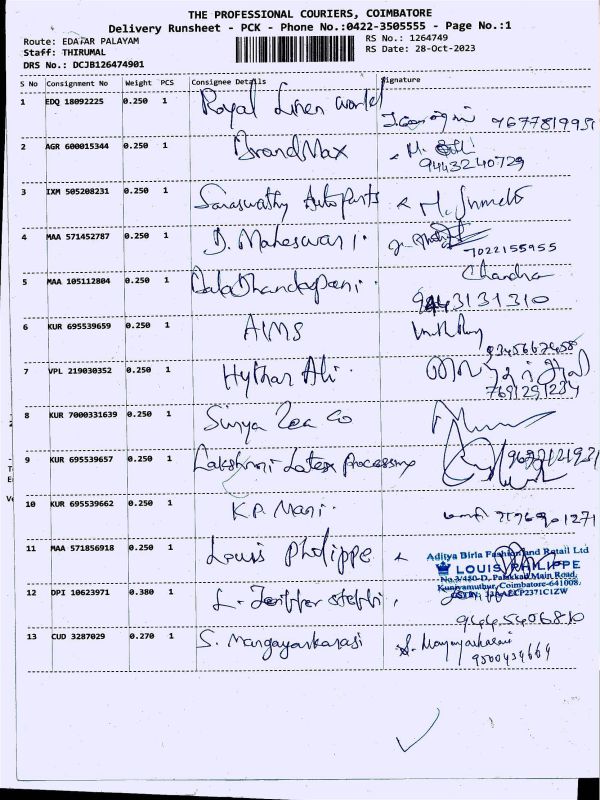 THE PROFESSIONAL COURIERS, COIMBATORE
Delivery Runsheet - PCK - Phone No.:0422-3505555 - Page No.:1
Route: EDAYAR PALAYAM RS No.: 1264749
Staff: THIRUMAL RS Date: 28-Oct-2023
DRS No.: DCJB126474901
S No Consignment No Weight PCS Consignee Details Signature
1 EDQ 18092225 0.250 1 Royal Linen World
2 AGR 600015344 0.250 1 BrandMax
9443240729
3 IXM 505208231 0.250 1 Saraswathy Auto Parts
4 MAA 571452787 0.250 1 D. Maheswari
7022155955
5 MAA 105112804 0.250 1 BalaDhandapani Chandra
9443131310
6 KUR 695539659 0.250 1 AIMS
7 VPL 219030352 0.250 1 Hythar Ali
8 KUR 7000331639 0.250 1 Surya Tea Co
9 KUR 695539657 0.250 1 Lakshmi Latex Processing
10 KUR 695539662 0.250 1 K.P. Mani
11 MAA 571856918 0.250 1 Louis Philippe
Aditya Birla Fashion and Retail Ltd
LOUIS PHILIPPE
No.3/480-D, Palakkad Main Road,
Kuniyamuthur, Coimbatore-641008.
12 DPI 10623971 0.380 1 L. Jeniffer steffi
9445406810
13 CUD 3287029 0.270 1 S. Mangayarkarasi S. Mangayarkarasi
9500454664